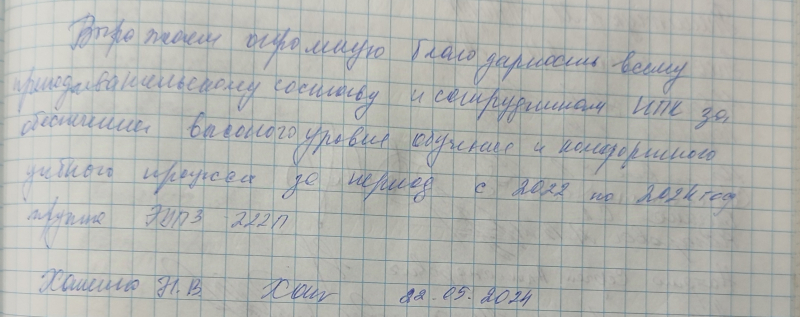 Выражаем огромную благодарность всему
преподавательскому составу и сотрудникам ИПК за
обеспечение высокого уровня обучения и комфортного
учебного процесса за период с 2022 по 2024 год
группа 222П
Н.В. 22.05.2024